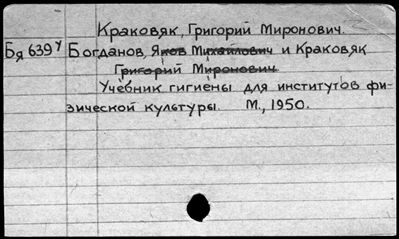 Краковяк, Григорий Миронович.
Бя 639ч Богданов, Яков Михайлович и Краковяк
Григорий Миронович
Учебник гигиены для институтов фи-
зической культуры. М., 1950.